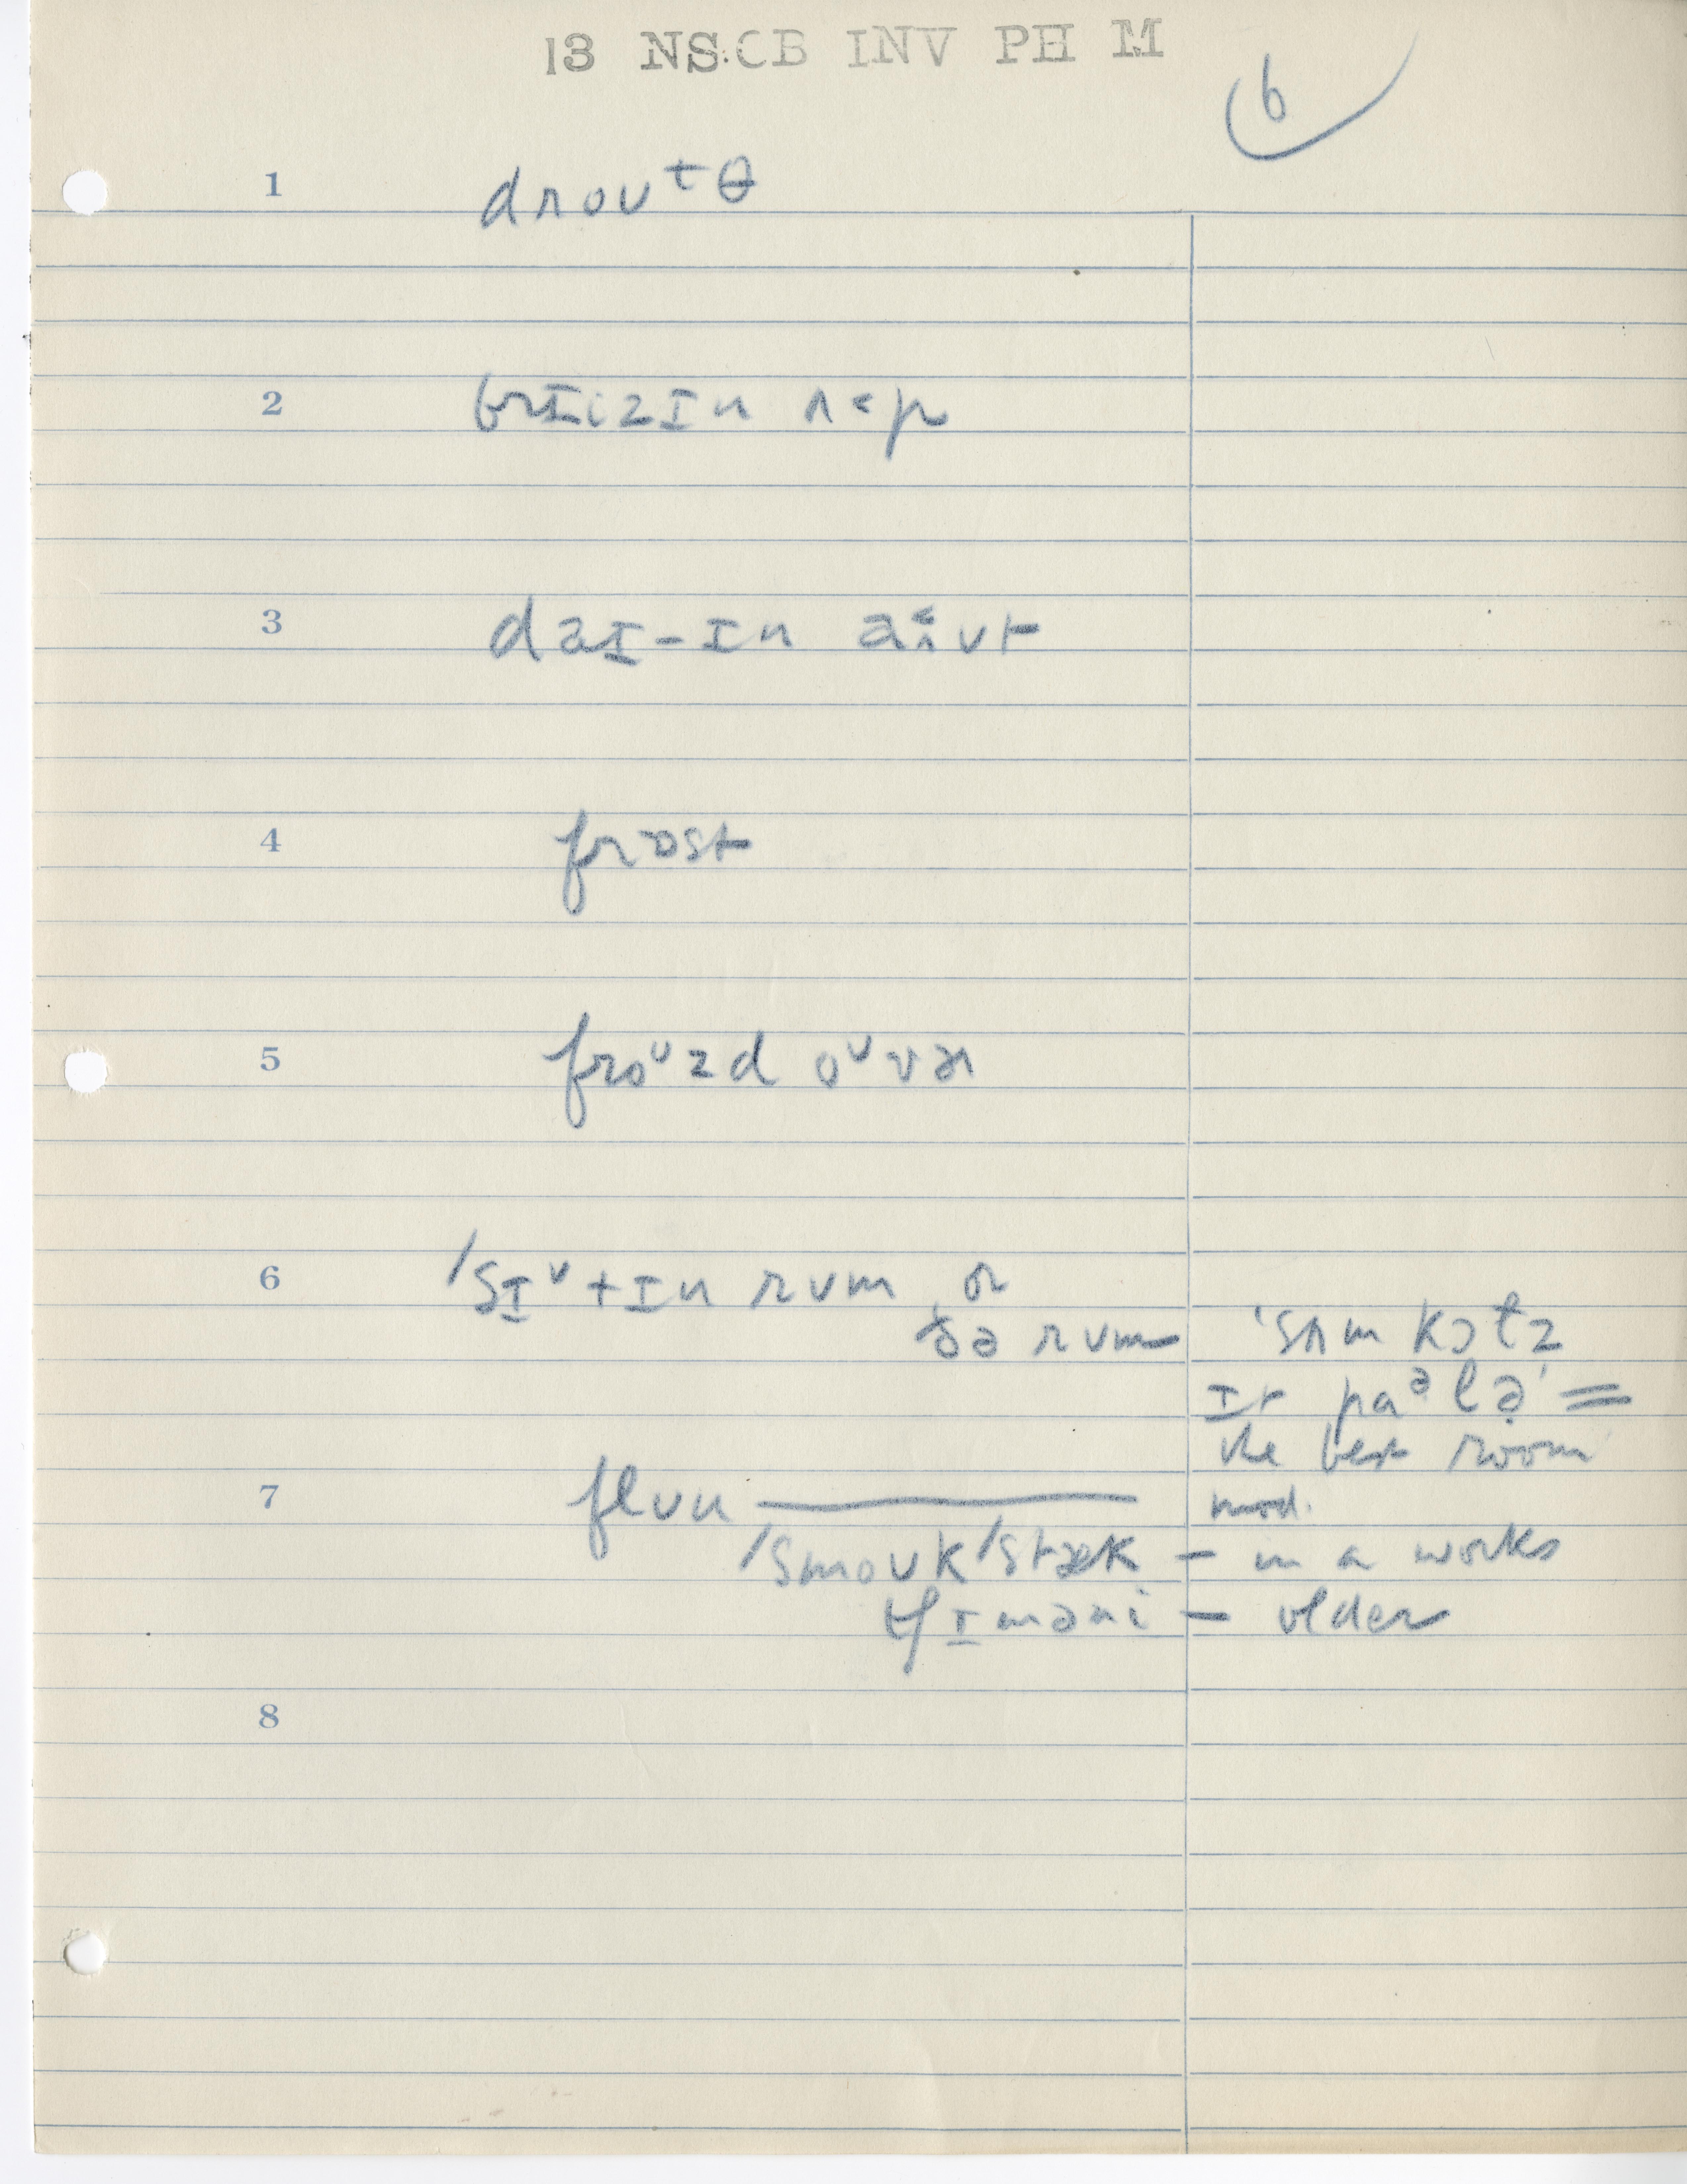 13 NS:CB INV PH M
6
1 drouᵗθ
2 brɪizɪn ʌ˂p
3 daɪ-ɪn aʌ˂ʊt
4 frɒst
5 froᵘzd oᵘvər
6 /sɪᵛtɪn rʊm or
ðə rʊm
'sʌm kɔłz
ɪt paᵊlə̣' =
the best room
mod.
7 flʊu ———
/smoʊk/stæk – in a works
tʃɪməni – older
8